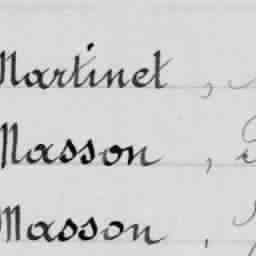 Martinet,
Masson,
Masson,